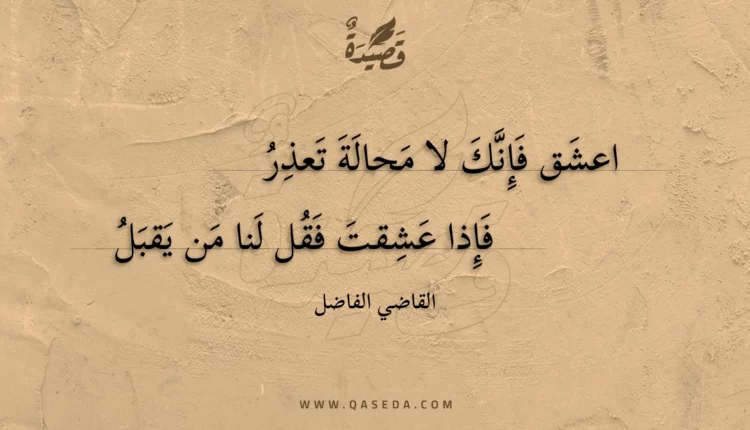 قَصِيدَةٌ
اعشَق فَإِنَّكَ لا مَحالَةَ تَعذِرُ
فَإِذا عَشِقتَ فَقُل لَنا مَن يَقبَلُ
القاضي الفاضل
WWW.QASEDA.COM